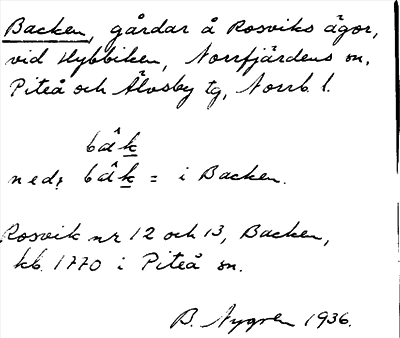 Backen, gårdar å Rosviks ägor,
vid Hybbiken, Norrfjärdens sn,
Piteå och Älvsby tg, Norrb. l.
bâk
ned, bâk = i Backen.
Rosvik nr 12 och 13, Backen,
kb. 1770 i Piteå sn.
B. Nygren 1936.